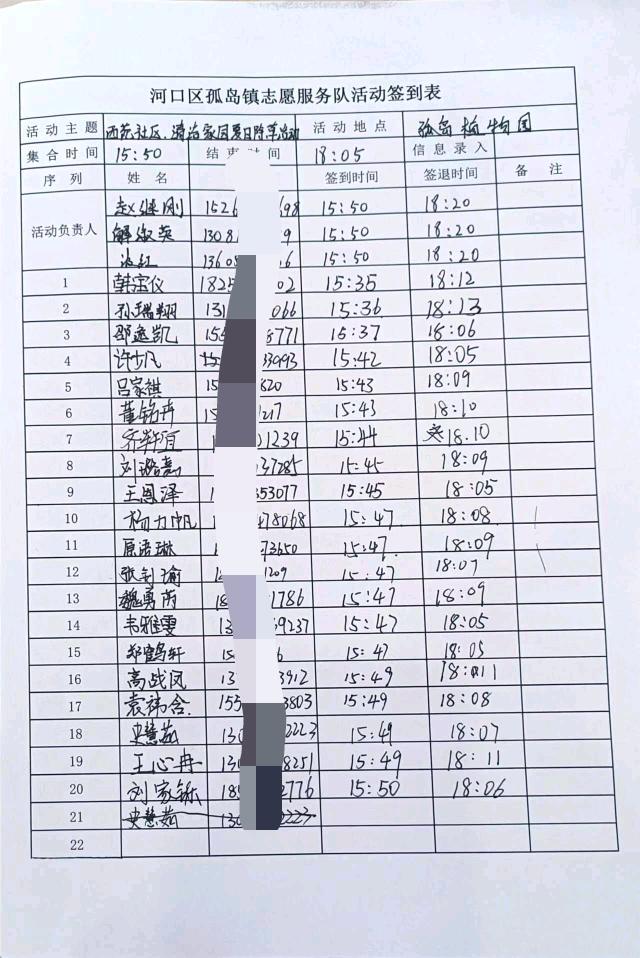 河口区孤岛镇志愿服务队活动签到表
活动主题 西苑社区. 活动 活动地点 孤岛植物园
集合时间 15:50 结 时间 18:05 信息录入
序列 姓名 签到时间 签退时间 备注
活动负责人
赵继刚 1526 698 15:50 18:20
解淑英 1308 9 15:50 18:20
1360 6 15:50 18:20
1 韩宝仪 1825 02 15:35 18:12
2 孙瑞翔 131 066 15:36 18:13
3 邵逸凯 155 8771 15:37 18:06
4 许少凡 33993 15:42 18:05
5 吕家祺 15 820 15:43 18:09
6 董铭卉 15 217 15:43 18:10
7 齐轩宜 1 21239 15:44 18:10
8 刘璐嘉 37285 15:45 18:09
9 王恩泽 353077 15:45 18:05
10 杨力帆 478068 15:47 18:08
11 原语琳 73650 15:47 18:09
12 张钊瑜 1209 15:47 18:07
13 魏勇芮 18 1786 15:47 18:09
14 韦雅雯 13 59237 15:47 18:05
15 郑鹤轩 15 6 15:47 18:05
16 高战凤 13 3912 15:49 18:011
17 袁祎含 155 3803 15:49 18:08
18 史慧茹 130 2223 15:49 18:07
19 王心冉 130 8251 15:49 18:11
20 刘家铄 18 2776 15:50 18:06
21 史慧茹 130 2223
22